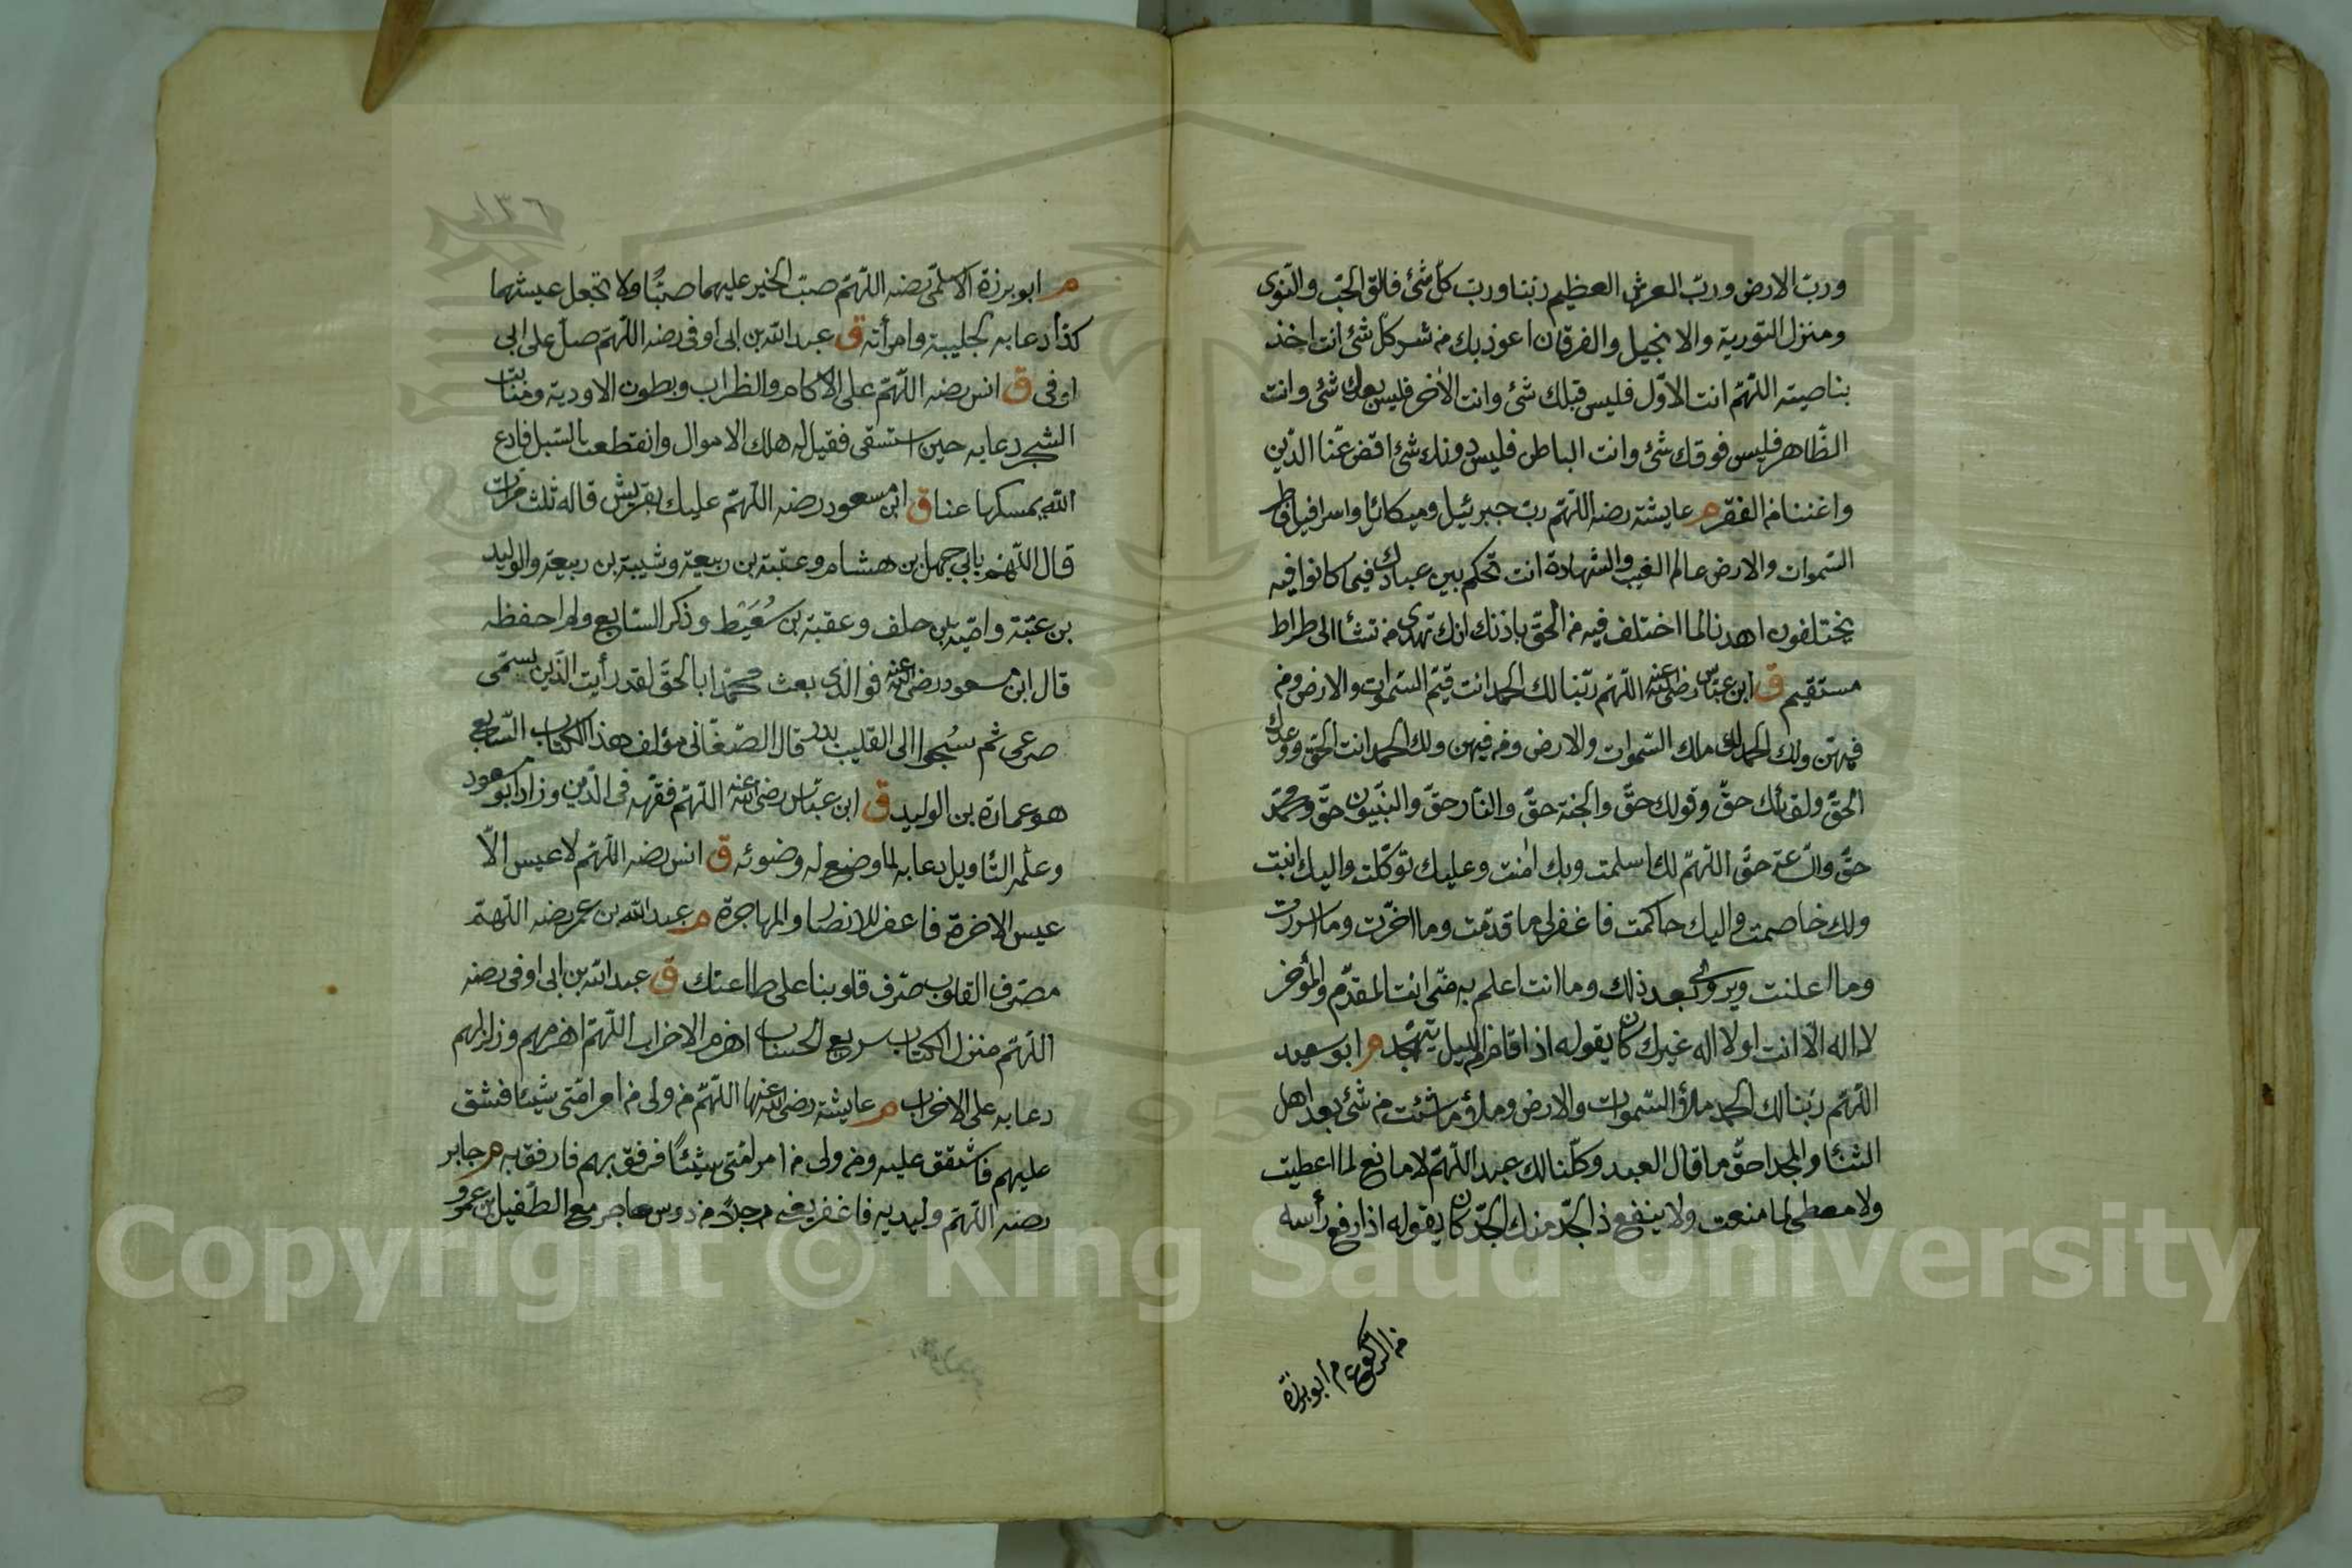 ورب الارض ورب العرش العظيم ربنا ورب كل شئ فالق الحب والنوى
ومنزل التورية والانجيل والفرقان اعوذ بك من شر كل شئ انت اخذ
بناصيته اللهم انت الاول فليس قبلك شئ وانت الاخر فليس بعدك شئ وانت
الظاهر فليس فوقك شئ وانت الباطن فليس دونك شئ اقض عنا الدين
واغننا من الفقر م عايشة رضه اللهم رب جبرئيل وميكائل واسرافيل فاطر
السموات والارض عالم الغيب والشهادة انت تحكم بين عبادك فيما كانوا فيه
يختلفون اهدنا لما اختلف فيه من الحق باذنك انك تهدى من تشأ الى طراط
مستقيم ق ابن عباس رضى الله عنه اللهم ربنا لك الحمد انت قيم السموات والارض ومن
فيهن ولك الحمد لك ملك السموات والارض ومن فيهن ولك الحمد انت الحق ووعدك
الحق ولقائك حق وقولك حق والجنة حق والنار حق والنبيون حق ومحمد
حق والساعة حق اللهم لك اسلمت وبك امنت وعليك توكلت واليك انبت
ولك خاصمت واليك حاكمت فاغفرلى ما قدمت وما اخرت وما اسررت
وما اعلنت ويروى بعد ذلك وما انت اعلم به منى انت المقدم والمؤخر
لا اله الا انت او لا اله غيرك كان يقوله اذا قام من الليل يتهجد م ابو سعيد
اللهم ربنا لك الحمد ملؤ السموات والارض وملؤ ما شئت من شئ بعد اهل
الثنأ والمجد احق ما قال العبد وكلنا لك عبد اللهم لا مانع لما اعطيت
ولا معطى لما منعت ولا ينفع ذا الجد منك الجد كان يقوله اذا رفع رأسه
من الركوع م ابو برزة
١٣٦
م ابو برزة الاسلمى رضه اللهم صب الخير عليهما صبا ولا تجعل عيشهما
كدا دعا به لجليبة وامرأته ق عبد الله بن ابى اوفى رضه اللهم صل على ابى
اوفى ق انس رضه اللهم على الاكام والظراب وبطون الاودية ومنابت
الشجر دعا به حين استسقى فقيل له هلك الاموال وانقطعت السبل فادع
الله يمسكها عنا ق ابن مسعود رضه اللهم عليك بقريش قاله ثلث مرات
قال اللهم بابى جهل بن هشام وعتبة بن ربيعة وشيبة بن ربيعة والوليد
بن عتبة وامية بن خلف وعقبة بن معيط وذكر السابع ولم احفظه
قال ابن مسعود رضى الله عنه فوالذى بعث محمدا بالحق لقد رأيت الذين سمى
صرعى ثم سحبوا الى القليب بدر قال الصغانى مؤلف هذا الكتاب السابع
هو عمارة بن الوليد ق ابن عباس رضى الله عنه اللهم فقهه فى الدين وزاد ابو مسعود
وعلمه التأويل دعا به لما وضع له وضوئه ق انس رضه اللهم لا عيس الا
عيس الاخرة فاغفر للانصار والمهاجرة م عبد الله بن عمر رضه اللهم
مصرف القلوب صرف قلوبنا على طاعتك ق عبد الله بن ابى اوفى رضه
اللهم منزل الكتاب سريع الحساب اهزم الاحزاب اللهم اهزمهم وزلزلهم
دعا به على الاحزاب م عايشة رضى الله عنها اللهم من ولى من امر امتى شيئا فشق
عليهم فاشقق عليه ومن ولى من امر امتى شيئا فرفق بهم فارفق به م جابر
رضه اللهم وليديه فاغفر يعنى رجلا من دوس هاجر مع الطفيل بن عمرو
Copyright © King Saud University
195